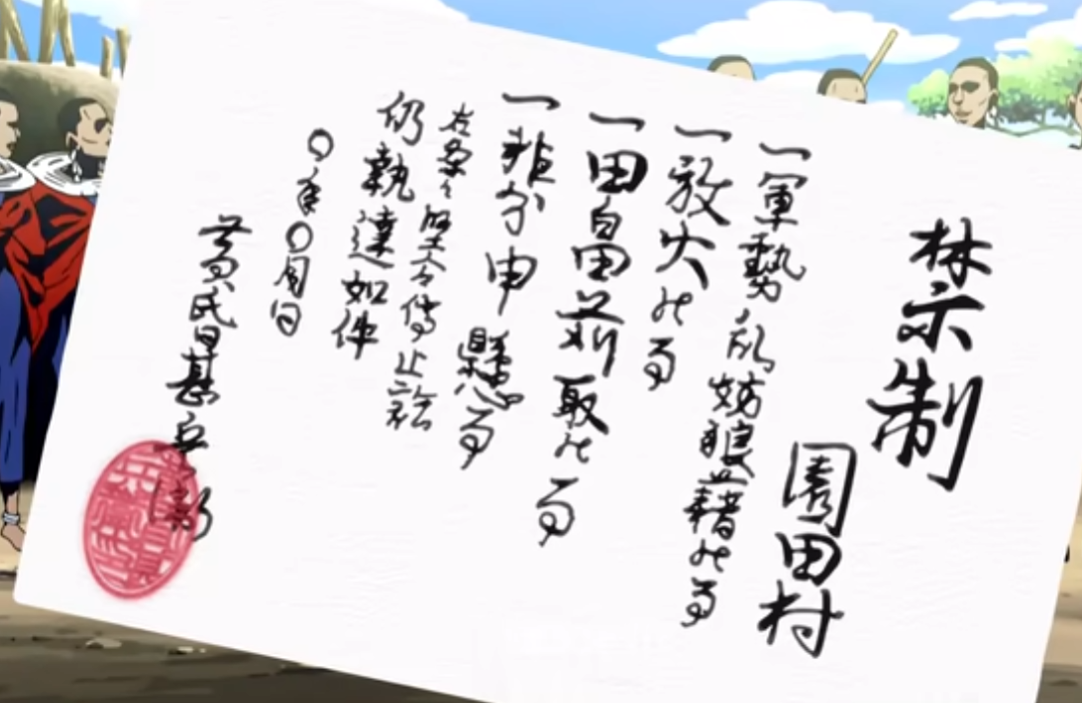 禁制
園田村
一軍勢乱妨狼藉之事
一放火之事
一田畠苅取之事
一非分申懸事
右条々堅令停止訖
仍執達如件
〇年〇月日
黄昏甚兵衛